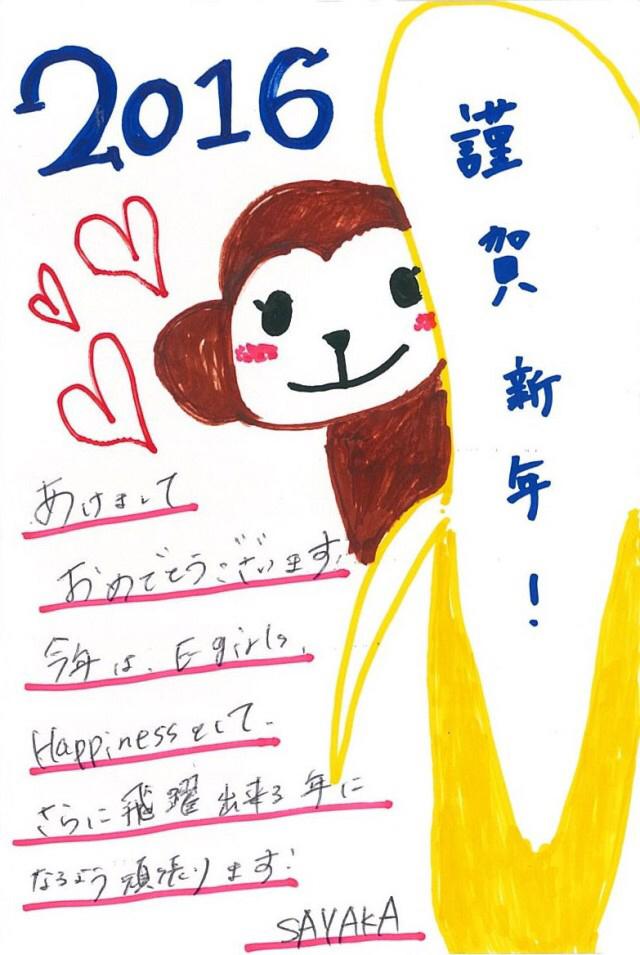 2016
謹賀新年！
あけまして
おめでとうございます！
今年は、E-girls、
Happinessとして、
さらに飛躍出来る年に
なるよう頑張ります！
SAYAKA